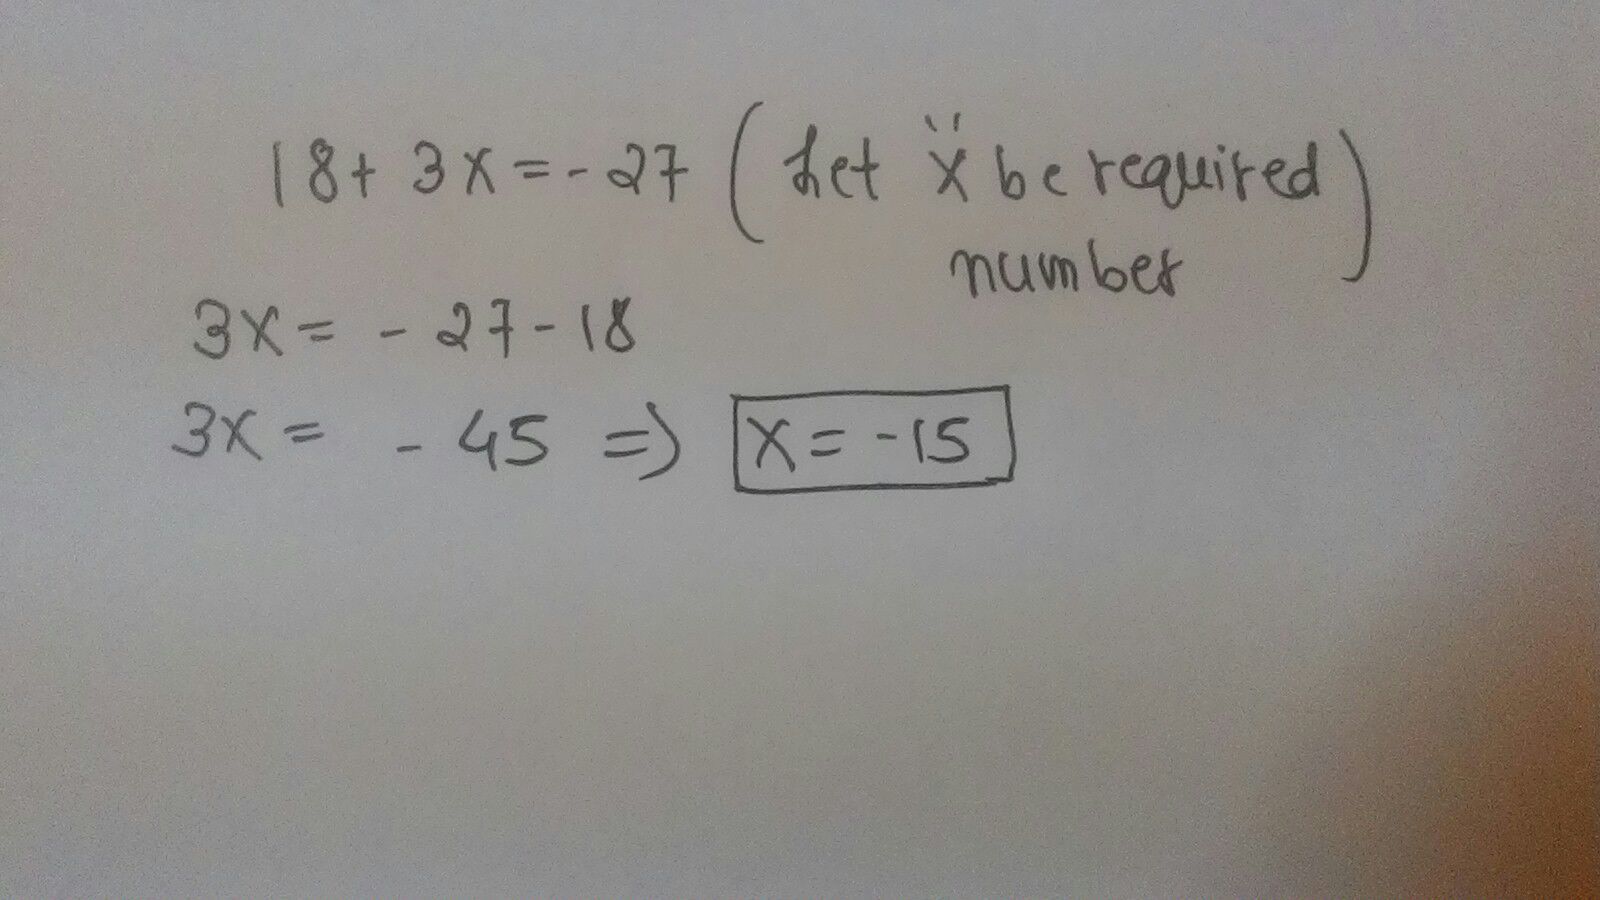 18+ 3x = - 27 ( Let "x be required
number )
3x = - 27 - 18
3x = - 45 => x = -15